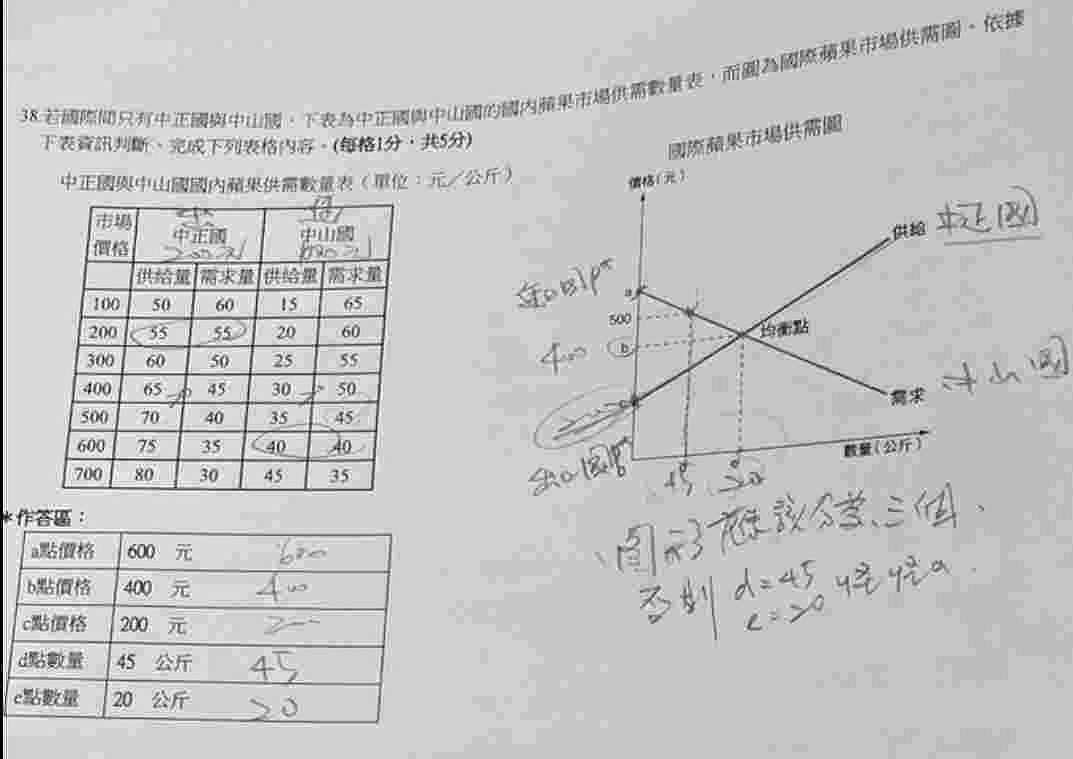 38.若國際間只有中正國與中山國，下表為中正國與中山國的國內蘋果市場供需數量表，而圖為國際蘋果市場供需圖。依據
下表資訊判斷、完成下列表格內容。(每格1分，共5分)
國際蘋果市場供需圖
中正國與中山國國內蘋果供需數量表（單位：元／公斤）
市場價格 中正國 中山國
供給量 需求量 供給量 需求量
100 50 60 15 65
200 55 55 20 60
300 60 50 25 55
400 65 45 30 50
500 70 40 35 45
600 75 35 40 40
700 80 30 45 35
價格(元)
供給
a
500
均衡點
400 b
需求
中山國
數量(公斤)
45 20
圖示應該分為三個、
否則 d=45
e=20
*作答區：
a點價格 600 元 600
b點價格 400 元 400
c點價格 200 元 200
d點數量 45 公斤 45
e點數量 20 公斤 20